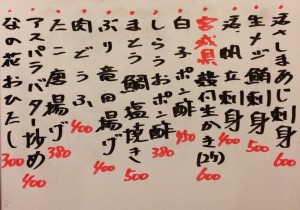 活さしまあじ刺身 600
生メジ鮪刺身 500
活帆立刺身 600
宮城県殻付生かき(2ケ) 600
白子ポン酢 450
しらうおポン酢 380
まとう鯛塩焼き 500
ぶり竜田揚げ 400
肉どうふ 400
たこ唐揚げ 380
アスパラバター炒め 400
なの花おひたし 300